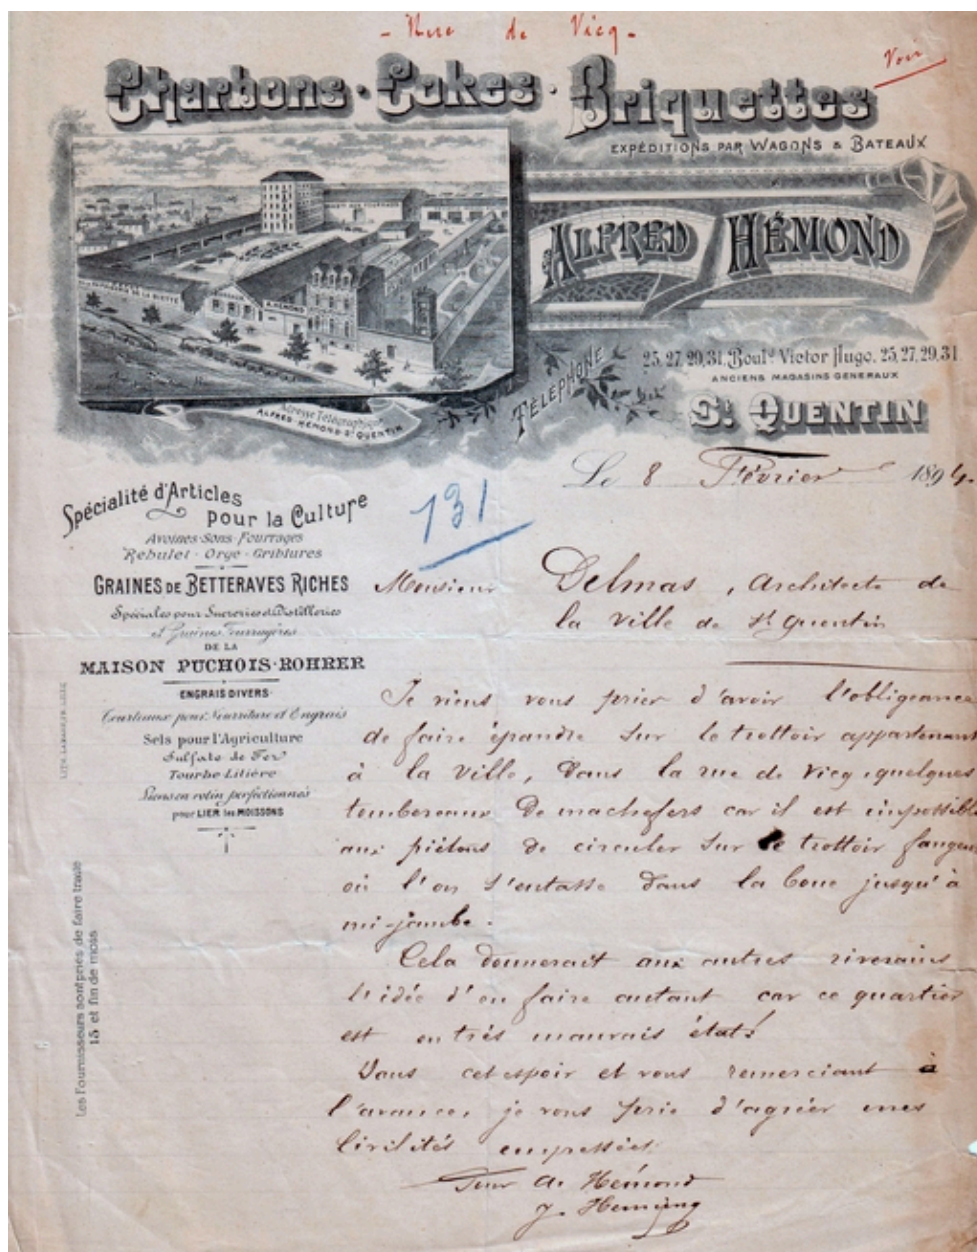 - Rue de Vicq -
Voir
Charbons · Cokes · Briquettes
EXPÉDITIONS PAR WAGONS & BATEAUX
ALFRED HÉMOND
A. HÉMOND
TÉLÉPHONE
25, 27, 29, 31, Boulᵈ Victor Hugo, 25, 27, 29, 31
ANCIENS MAGASINS GENERAUX
Sᵗ QUENTIN
Adresse Télégraphique
ALFRED-HÉMOND-Sᵗ QUENTIN
Le 8 Février 1894.
131
Spécialité d'Articles
pour la Culture
Avoines-Sons-Fourrages
Rebulet - Orge - Griblures
GRAINES DE BETTERAVES RICHES
Spéciales pour Sucreries et Distilleries
et Graines Fourragères
DE LA
MAISON PUCHOIS-ROHRER
ENGRAIS DIVERS
Tourteaux pour Nourriture et Engrais
Sels pour l'Agriculture
Sulfate de Fer
Tourbe Litière
Liens en rotin perfectionnés
pour LIER les MOISSONS
Les Fournisseurs sont priés de faire traite
15 et fin de mois
Monsieur Delmas, Architecte de
la Ville de St Quentin
Je viens vous prier d'avoir l'obligeance
de faire épandre sur le trottoir appartenant
à la Ville, dans la rue de Vicq, quelques
tombereaux de machefers car il est impossible
aux piétons de circuler sur le trottoir fangeu
où l'on s'entasse dans la boue jusqu'à
mi-jambe.
Cela donnerait aux autres riverains
l'idée d'en faire autant car ce quartier
est en très mauvais état!
Dans cet espoir et vous remerciant à
l'avance, je vous prie d'agréer mes
Civilités empressées
Pour A. Hémond